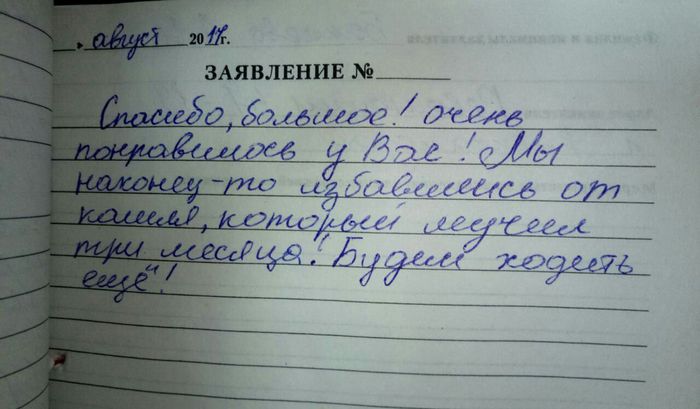 август 2017г.
ЗАЯВЛЕНИЕ №
Спасибо, большое! очень
понравилось у Вас! Мы
наконец-то избавились от
кашля, который мучил
три месяца! Будем ходить
ещё!